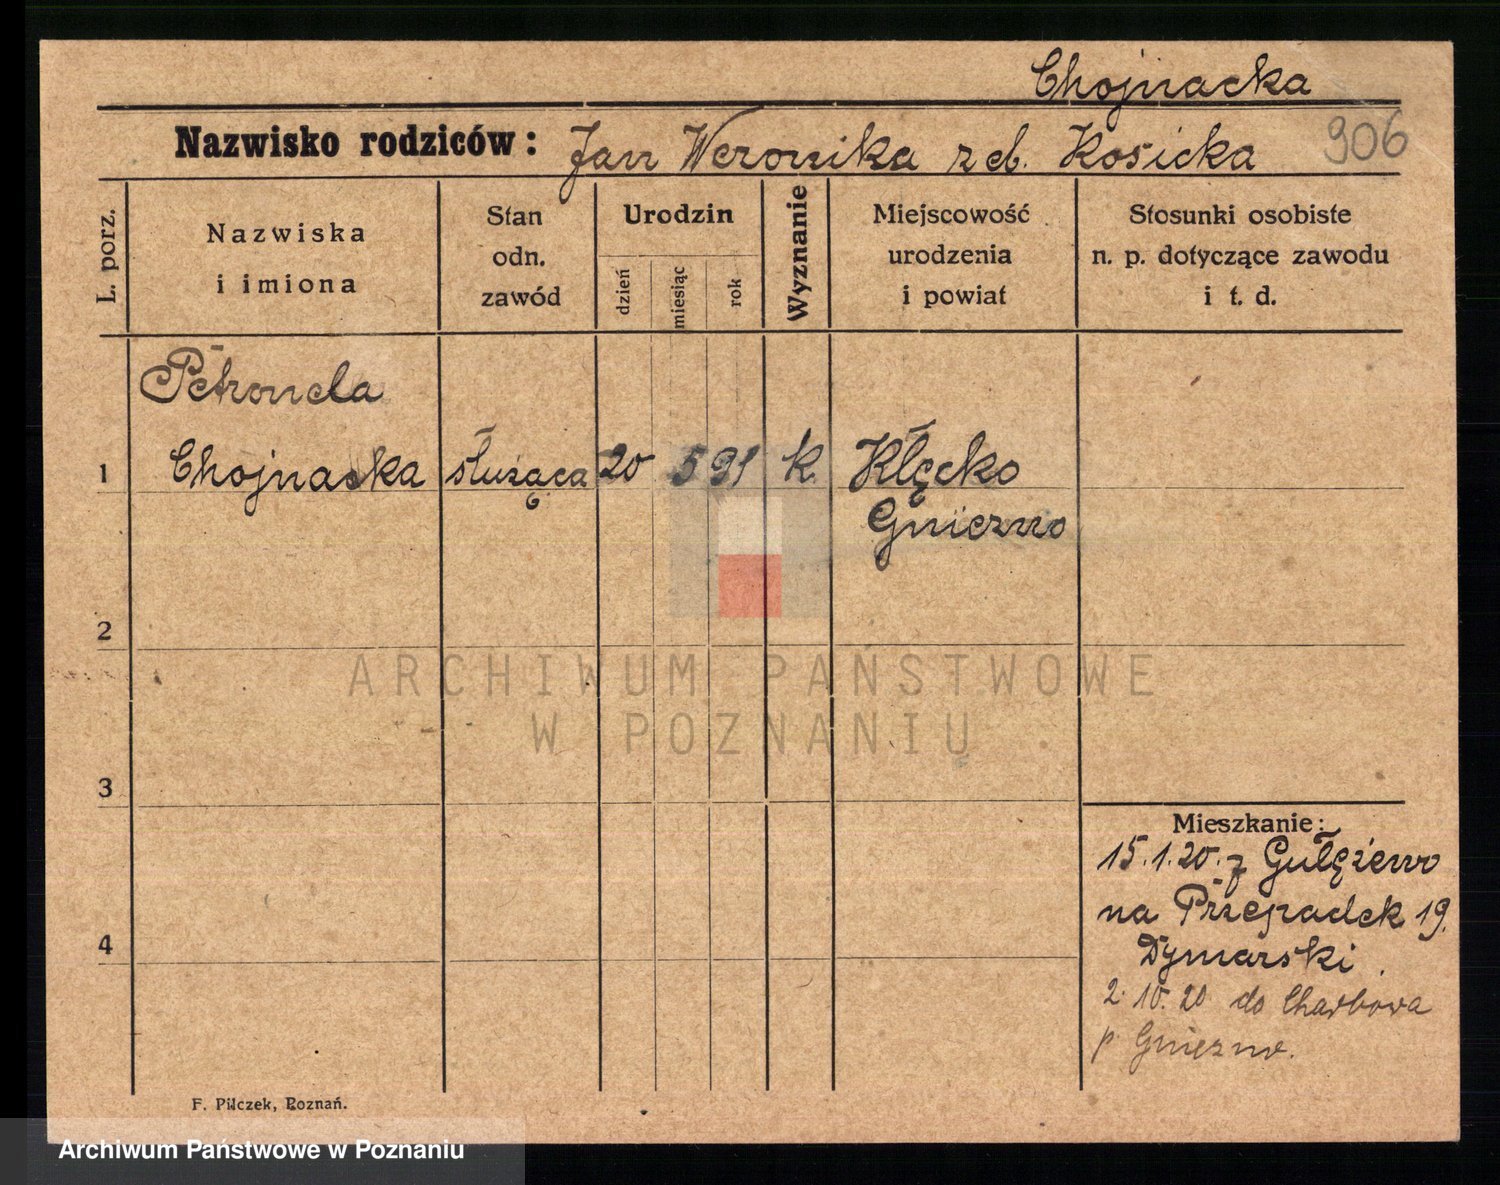 Chojnacka
Nazwisko rodziców: Jan Weronika z d. Kosicka 906
L. porz.
Nazwiska
i imiona
Stan
odn.
zawód
Urodzin
dzień
miesiąc
rok
Wyznanie
Miejscowość
urodzenia
i powiat
Stosunki osobiste
n. p. dotyczące zawodu
i t. d.
Petronela
1 Chojnacka służąca 20 5 91 k. Kłęcko
Gniezno
2
ARCHIWUM PAŃSTWOWE
W POZNANIU
3
Mieszkanie:
15.1.20. z Gułężewo
na Przepadek 19.
Dymarski.
4
2.10.20 do Charbowa
p. Gniezno.
F. Pilczek, Poznań.
Archiwum Państwowe w Poznaniu